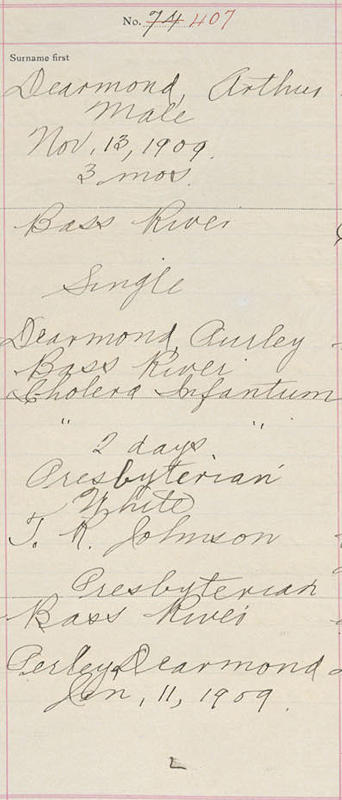 No. 74 407
Surname first
Dearmond, Arthur
Male
Nov. 13, 1909.
3 mos.
Bass River
Single
Dearmond, Purley
Bass River
Cholera Infantum
" "
2 days
Presbyterian
White
T. R. Johnson
Presbyterian
Bass River
Perley Dearmond
Jan, 11, 1909.